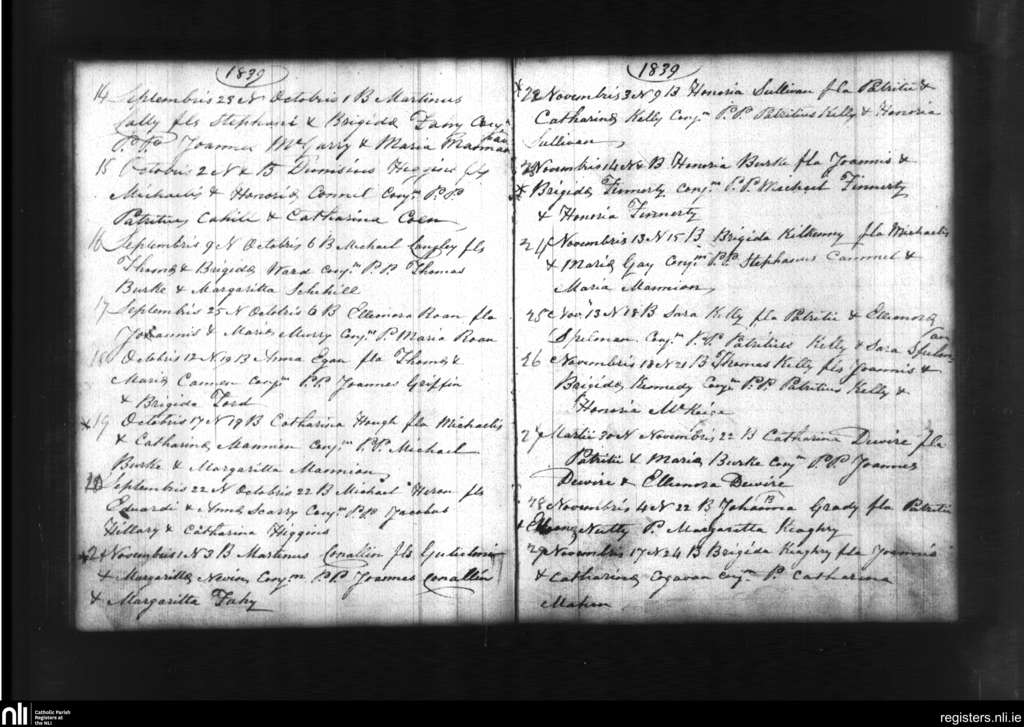 1839
14 Septembris 28 N Octobris 1 B Martinus
Lally fls Stephani & Brigida Dany Conj.m
P.P. Joannes McGarry & Maria Mannion
15 Octobris 2 N & B Dionisius Higgins fls
Michaelis & Honoria Connel Conj.m P.P.
Patritius Cahill & Catharina Coen
16 Septembris 9 N Octobris 6 B Michael Langley fls
Thoma & Brigida Ward conj.m P.P. Thomas
Burke & Margaritta Schehill
17 Septembris 25 N Octobris 6 B Ellenora Roan fla
Johannis & Maria Murry Conj.m P. Maria Roan
18 Octobris 12 N 19 B Anna Egan fla Thoma &
Maria Camon conj.m P.P. Joannes Griffin
& Brigida Ford
19 Octobris 17 N 19 B Catharina Hough fla Michaelis
& Catharina Mannion conj.m P.P. Michael
Burke & Margaritta Mannion
Septembris 22 N Octobris 22 B Michael Heron fls
Eduardi & Anna Scarry Conj.m P.P. Jacobus
Hillary & Catharina Higgins
Novembris 1 N 3 B Martinus Conallin fls Gulielmi
& Margaritta Nevin Conj.m P.P. Joannes Conallin
& Margaritta Fahy
1839
22 Novembris 3 N 9 B Honoria Sullivan fla Patritii &
Catharina Kelly Conj.m P.P. Patritius Kelly & Honoria
Sullivan
Novembris 14 N & B Honoria Burke fla Joannis &
Brigida Finnerty conj.m P.P. Michael Finnerty
& Honoria Finnerty
24 Novembris 13 N 15 B Brigida Kilkenny fla Michaelis
& Maria Gay Conj.m P.P. Stephanus Cammel &
Maria Mannion
25 Nov 13 N 18 B Sara Kelly fla Patritii & Ellenora
Spelman Conj.m P.P. Patritius Kelly & Sara Spelman
26 Novembris 18 N 21 B Thomas Kelly fls Joannis &
Brigida Kennedy Conj.m P.P. Patritius Kelly &
Honoria McKeige
27 Martii 30 N Novembris 22 B Catharina Dewire fla
Patritii & Maria Burke Conj.m P.P. Joannes
Dewire & Ellenora Dewire
28 Novembris 4 N 22 B Johanna Grady fla Patritii
& Natty P. Margaritta Keaghry
29 Novembris 17 N 24 B Brigida Keaghry fla Joannis
& Catharina Cogavan conj.m P. Catharina
Mahon
nli
Catholic Parish
Registers at
the NLI
registers.nli.ie